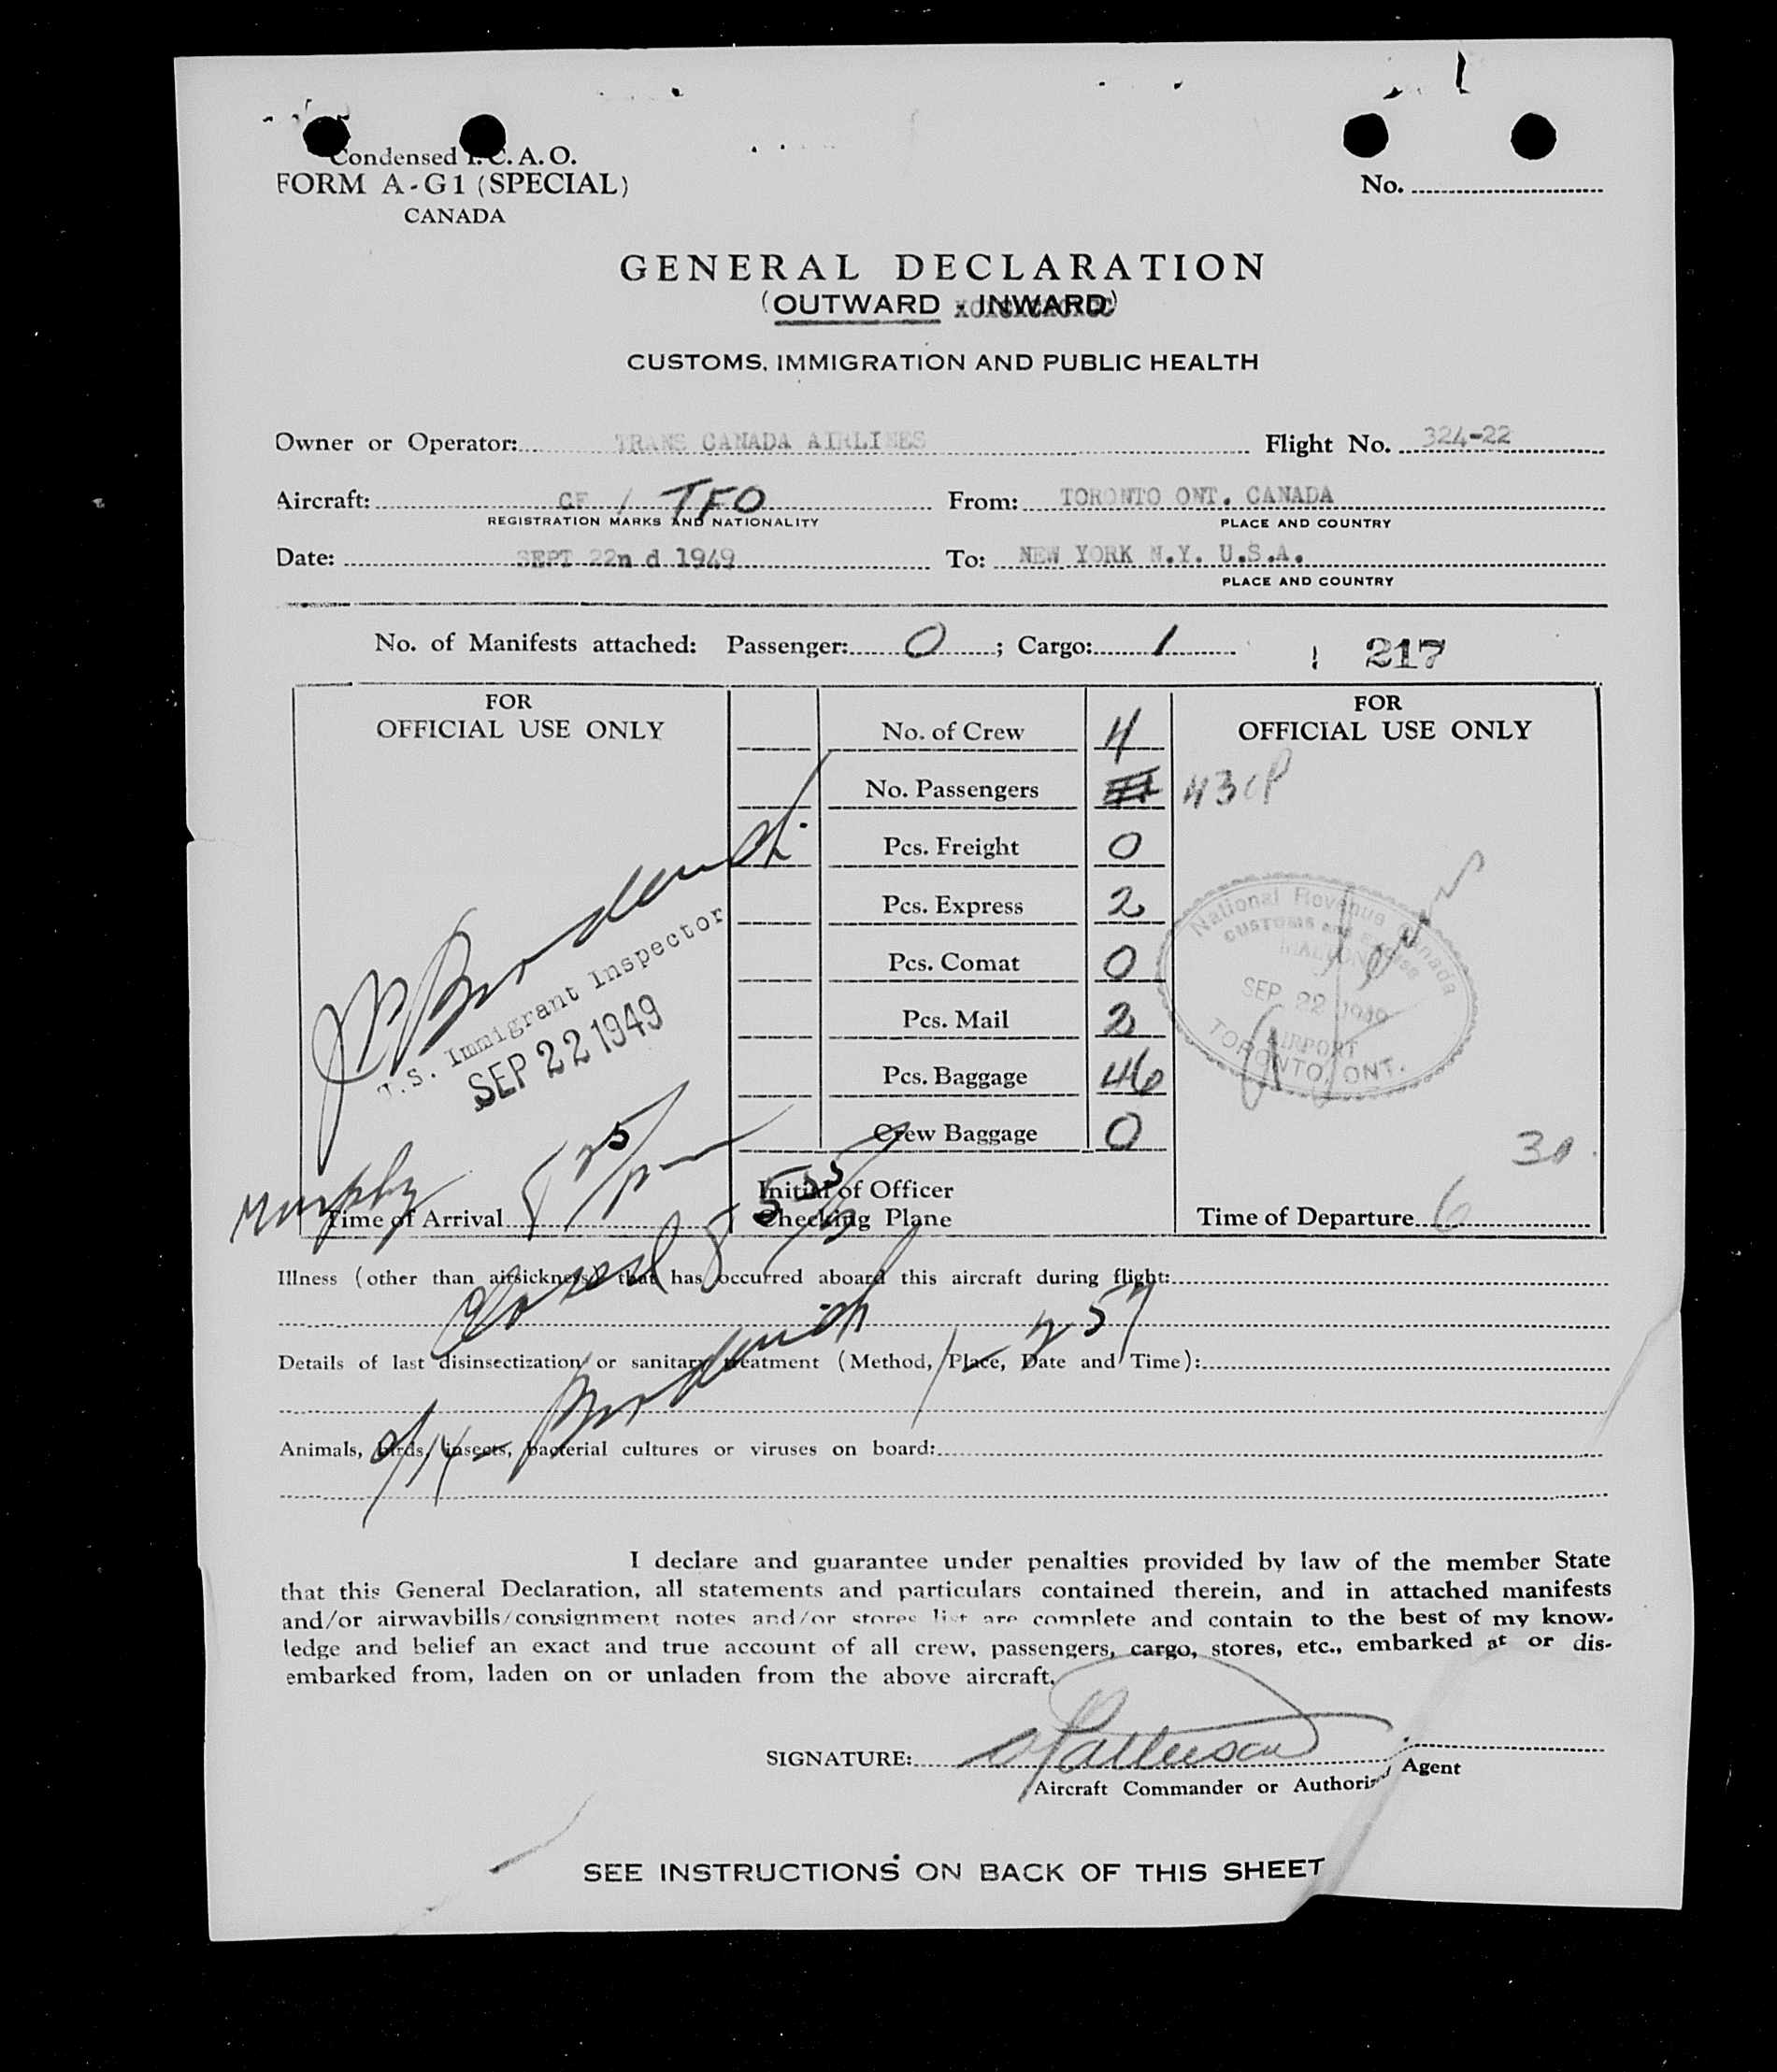 Condensed I.C.A.O.
FORM A-G1 (SPECIAL)
CANADA
No.
GENERAL DECLARATION
(OUTWARD - INWARD)
CUSTOMS, IMMIGRATION AND PUBLIC HEALTH
Owner or Operator: TRANS CANADA AIRLINES Flight No. 324-22
Aircraft: CF / TFO From: TORONTO ONT. CANADA
REGISTRATION MARKS AND NATIONALITY PLACE AND COUNTRY
Date: SEPT 22nd 1949 To: NEW YORK N.Y. U.S.A.
PLACE AND COUNTRY
No. of Manifests attached: Passenger: 0 ; Cargo: 1
217
FOR
OFFICIAL USE ONLY
No. of Crew 4
FOR
OFFICIAL USE ONLY
No. Passengers 43
Pcs. Freight 0
Pcs. Express 2
Pcs. Comat 0
Pcs. Mail 2
Pcs. Baggage 46
Crew Baggage 0
U.S. Immigrant Inspector
SEP 22 1949
National Revenue Canada
CUSTOMS and EXCISE
MALTON
SEP 22 1949
AIRPORT
TORONTO, ONT.
Murphy
Time of Arrival 5 25 pm
Initial of Officer
Checking Plane
Time of Departure 6 30
Closed 5 55
Illness (other than airsickness) that has occurred aboard this aircraft during flight:
Details of last disinsectization or sanitary treatment (Method, Place, Date and Time):
Animals, birds, insects, bacterial cultures or viruses on board:
I declare and guarantee under penalties provided by law of the member State
that this General Declaration, all statements and particulars contained therein, and in attached manifests
and/or airwaybills/consignment notes and/or stores list are complete and contain to the best of my know-
ledge and belief an exact and true account of all crew, passengers, cargo, stores, etc., embarked at or dis-
embarked from, laden on or unladen from the above aircraft.
SIGNATURE: Patterson
Aircraft Commander or Authorized Agent
SEE INSTRUCTIONS ON BACK OF THIS SHEET